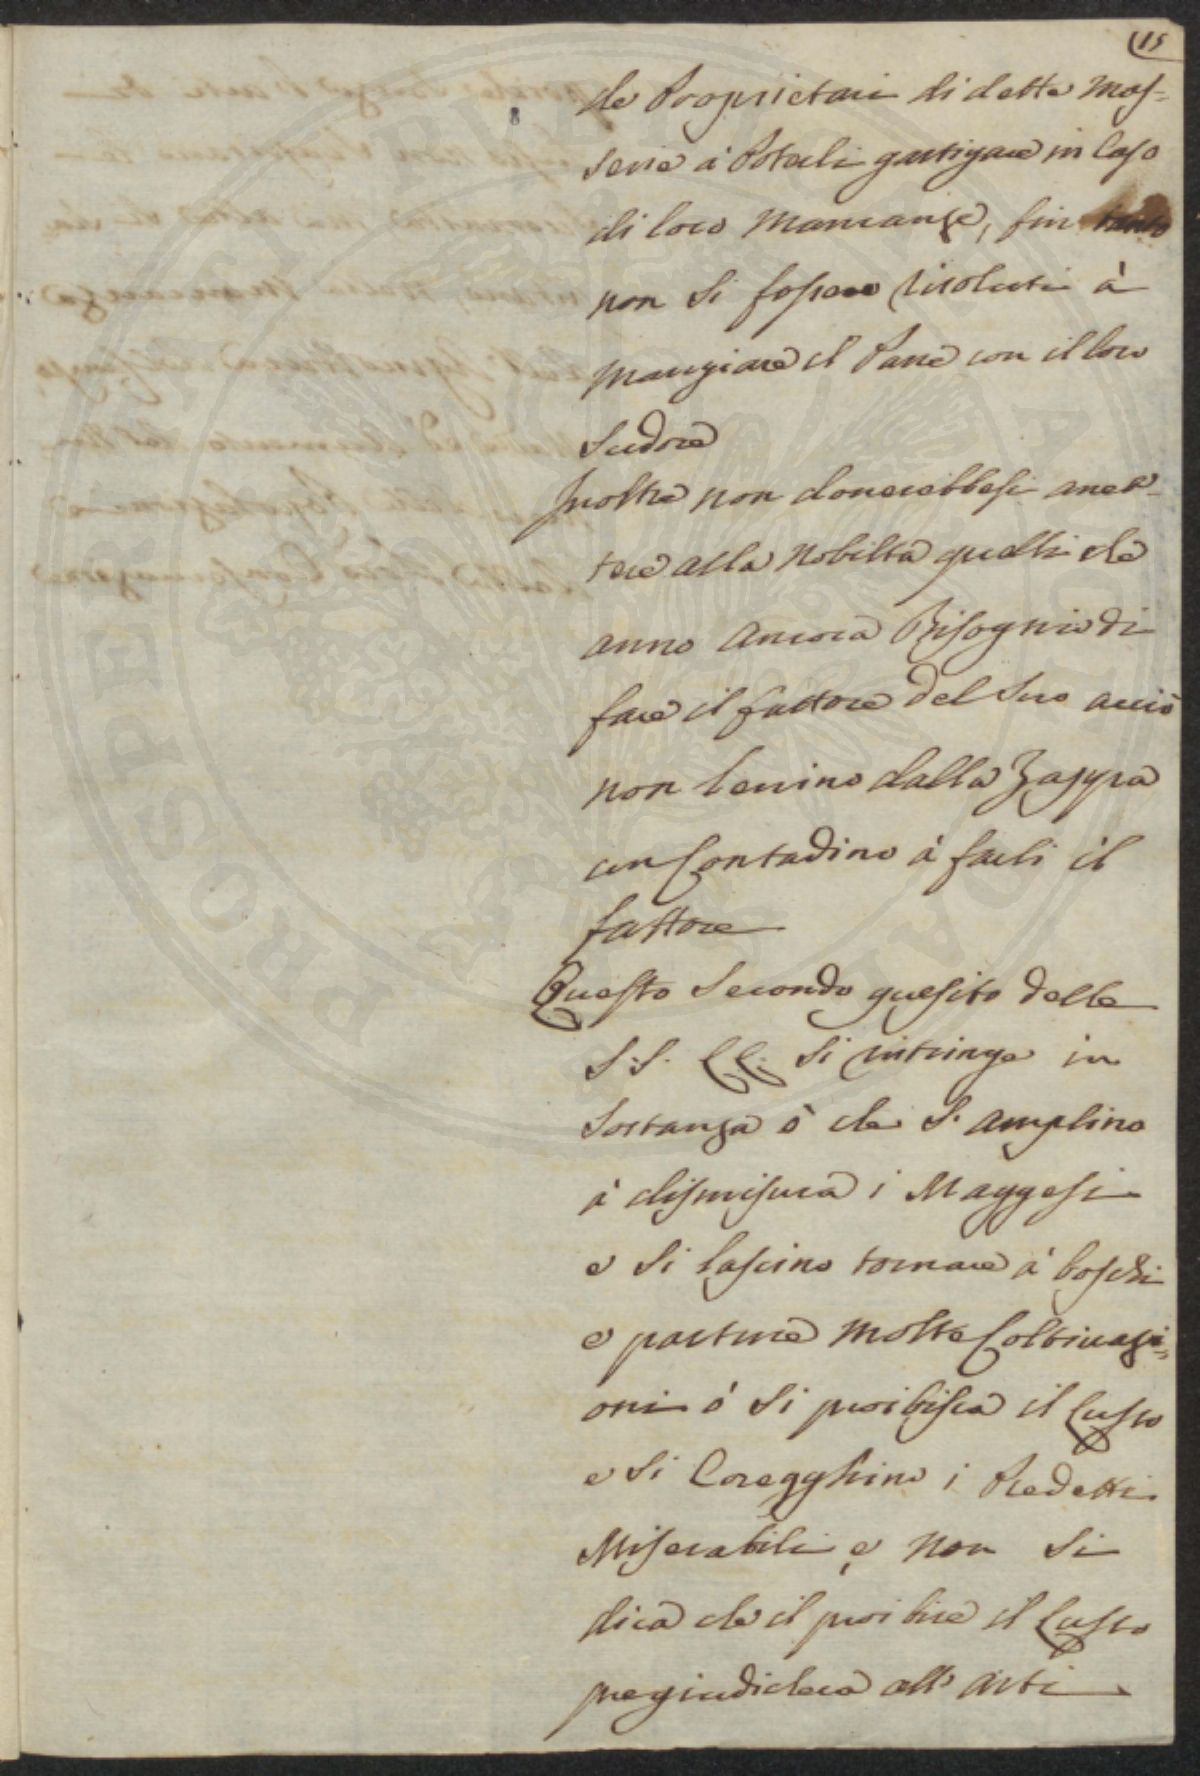 15
de Proprietari di dette Mas=
serie a' Poterli gastigare in Caso
di loro Mancanze, fin tanto
non Si fossero risoluti à
Mangiare il Pane con il loro
Sudore
Inoltre non doverebbesi amet=
tere alla Nobiltà quelli che
anno Ancora Bisognio di
fare il fattore del Suo acciò
non levino dalla Zappa
un Contadino à farli il
fattore
Questo Secondo quesito delle
S.S. LL. Si ristringe in
Sostanza ò che S. Amplino
à dismisura i Maggesi
e Si lascino tornare à boschi
e pasture Molte Coltivazi=
oni ò Si proibisca il Lusso
e Si Coregghino i Predetti
Miserabili e Non Si
dica che il proibire il Lusso
pregiudichera all' Arti
PROSPE